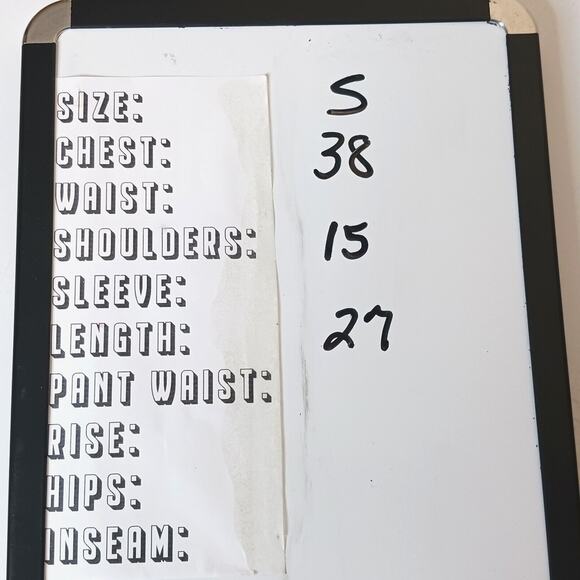 SIZE: S
CHEST: 38
WAIST:
SHOULDERS: 15
SLEEVE:
LENGTH: 27
PANT WAIST:
RISE:
HIPS:
INSEAM: